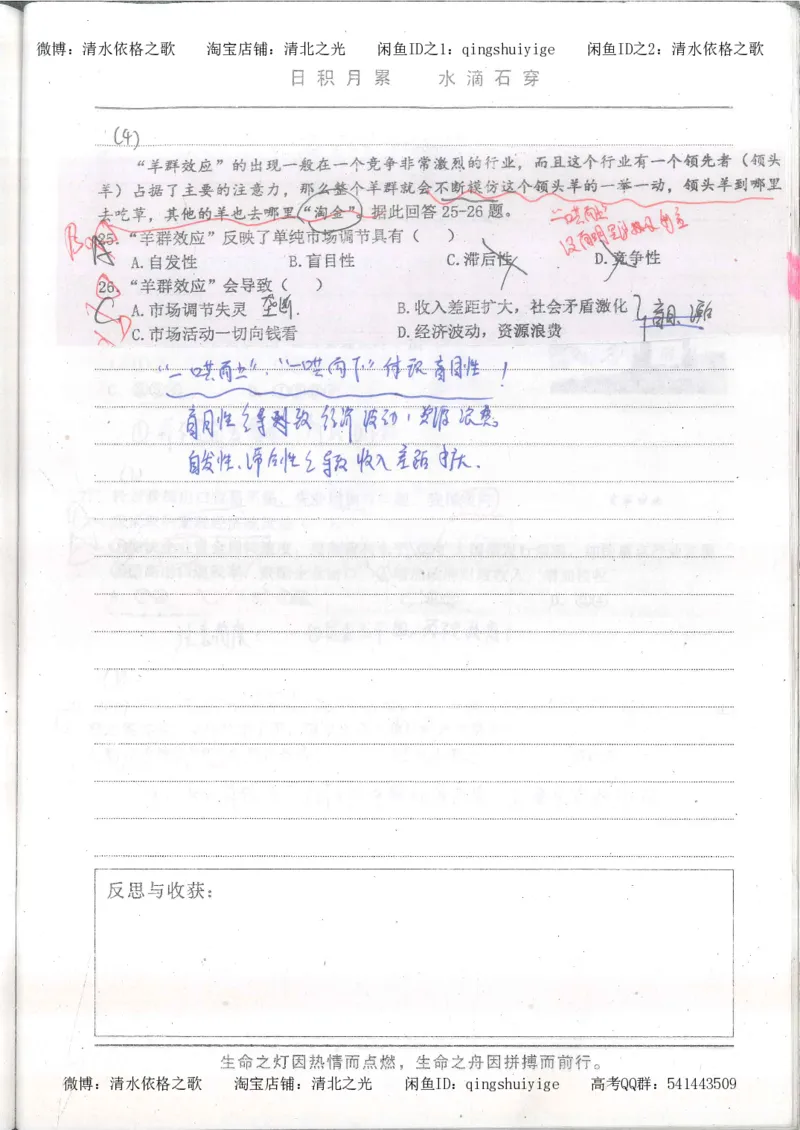 微博：清水依格之歌 淘宝店铺：清北之光 闲鱼ID之1：qingshuiyige 闲鱼ID之2：清水依格之歌
日积月累 水滴石穿
(4)
“羊群效应”的出现一般在一个竞争非常激烈的行业，而且这个行业有一个领先者（领头
羊）占据了主要的注意力，那么整个羊群就会不断模仿这个领头羊的一举一动，领头羊到哪里
去吃草，其他的羊也去哪里“淘金”。据此回答25-26题。
“一哄而上”
25.“羊群效应”反映了单纯市场调节具有（ ）
A.自发性 B.盲目性 C.滞后性 D.竞争性
26.“羊群效应”会导致（ ）
A.市场调节失灵 垄断. B.收入差距扩大，社会矛盾激化
C.市场活动一切向钱看 D.经济波动，资源浪费
“一哄而上”、“一哄而下”体现盲目性！
盲目性会导致经济波动，资源浪费。
自发性、滞后性会导致收入差距扩大.
反思与收获：
生命之灯因热情而点燃，生命之舟因拼搏而前行。
微博：清水依格之歌 淘宝店铺：清北之光 闲鱼ID：qingshuiyige 高考QQ群：541443509